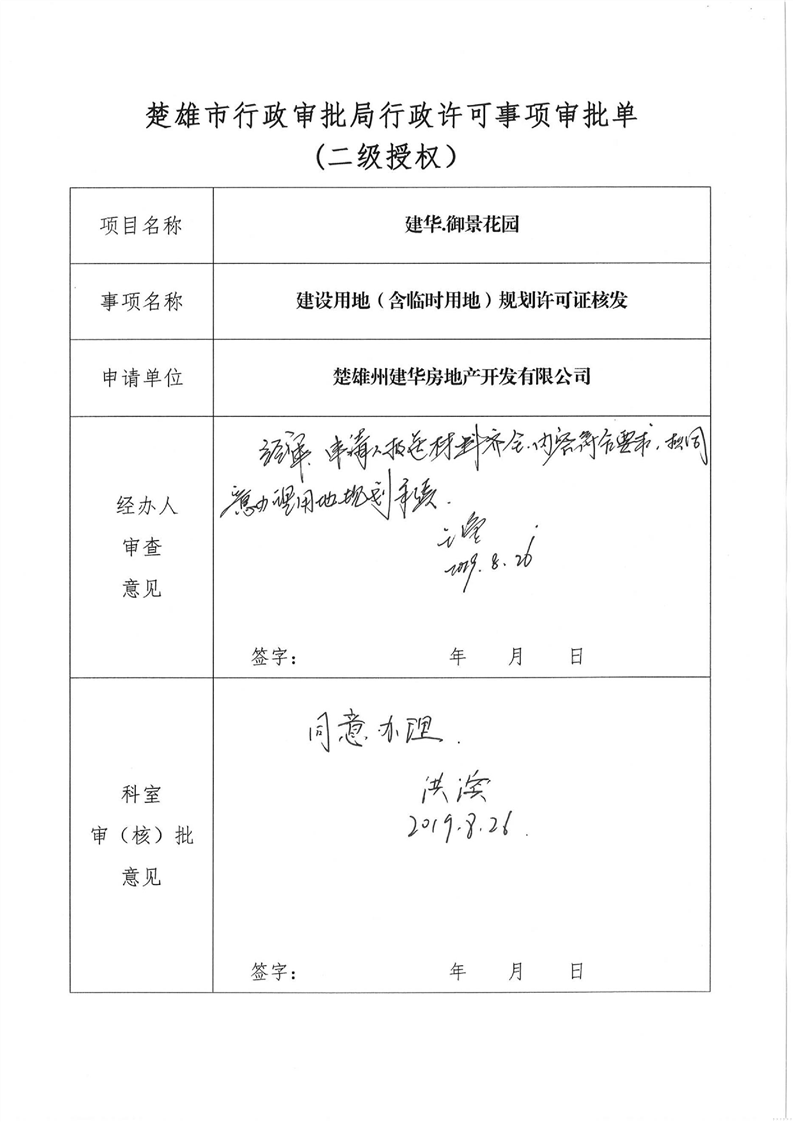 楚雄市行政审批局行政许可事项审批单
(二级授权)
项目名称
建华.御景花园
事项名称
建设用地(含临时用地)规划许可证核发
申请单位
楚雄州建华房地产开发有限公司
经办人
审查
意见
申请人报送材料齐全、内容符合要求,拟同
意办理用地规划手续.
2019.8.26
签字: 年 月 日
科室
审(核)批
意见
同意办理.
洪滨
2019.8.26.
签字: 年 月 日